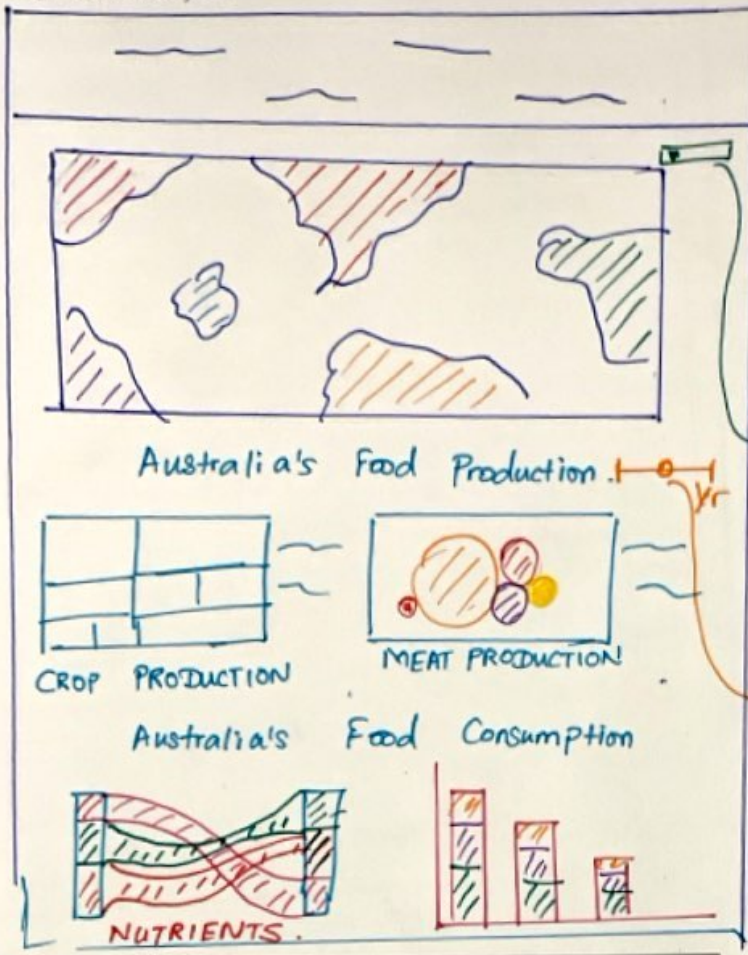 Australia's Food Production.
yr
CROP PRODUCTION
MEAT PRODUCTION
Australia's Food Consumption
NUTRIENTS.